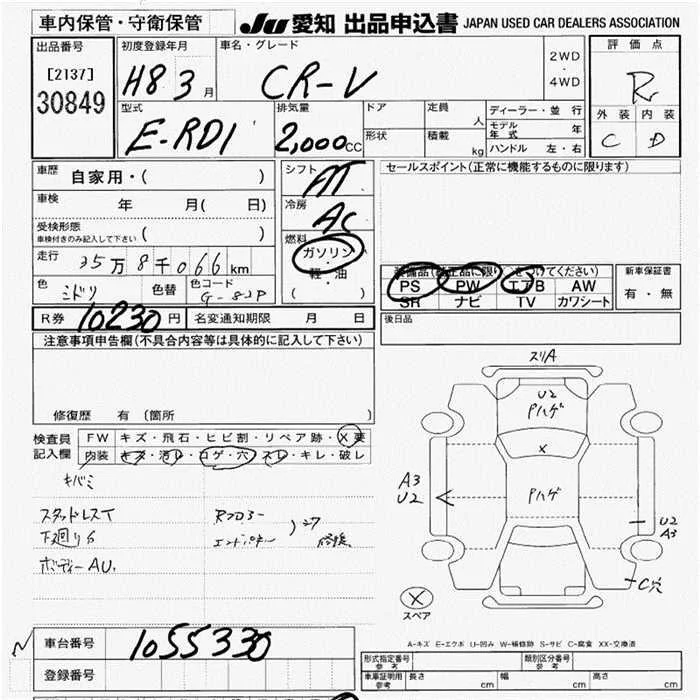 車内保管・守衛保管 JU 愛知 出品申込書 JAPAN USED CAR DEALERS ASSOCIATION
出品番号 初度登録年月 車名・グレード 2WD 評価点
[2137] H8 3月 CR-V ・ R
30849 4WD
型式 排気量 ドア 定員 人 ディーラー・並行 外装 内装
E-RD1 2,000cc 形状 積載 kg モデル年式 年 C D
ハンドル 左・右
車歴 自家用・( ) シフト AT セールスポイント(正常に機能するものに限ります)
車検 年 月( 日) 冷房 AC
受検形態
車検付きのみ記入して下さい ( ) 燃料
ガソリン
走行 万8千066km ・軽・油
( )
色 ミドリ 色替 色コード G-82P
PS PW エアB AW 新車保証書
SR ナビ TV カワシート 有・無
R券 10230円 名変通知期限 月 日 後日品
注意事項申告欄(不具合内容等は具体的に記入して下さい)
修復歴 有(箇所 )
検査員 FW キズ・飛石・ヒビ割・リペア跡・X要
記入欄 内装 キズ・汚れ・コゲ・穴・スレ・キレ・破レ
キバミ
スタッドレスT
下廻りS
ボディーAU.
修復
スリA
U2
Pハゲ
X
Pハゲ
A3
U2
U2
A3
C穴
X
スペア
A-キズ E-エクボ U-凹み W-補修跡 S-サビ C-腐食 XX-交換済
車台番号 1055330
登録番号
形式指定番号 参考 類別区分番号 参考
車庫証明用 参考 長さ cm 幅 cm 高さ cm